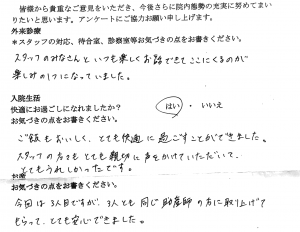 皆様から貴重なご意見をいただき、今後さらに院内態勢の充実に努めてまい
りたいと思います。アンケートにご協力お願い申し上げます。
外来診療
*スタッフの対応、待合室、診察室等お気づきの点をお書きください。
スタッフのみなさんといつも楽しくお話できてここにくるのが
楽しみの1つになっていました。
入院生活
快適にお過ごしになれましたか? はい ・ いいえ
お気づきの点をお書きください。
ご飯もおいしく、とても快適に過ごすことができました。
スタッフの方々もとても親切に声をかけていただいて、
とてもうれしかったです。
お産
お気づきの点をお書きください。
今回は3人目ですが、3人とも同じ助産師の方に取り上げて
もらって、とても安心できました。